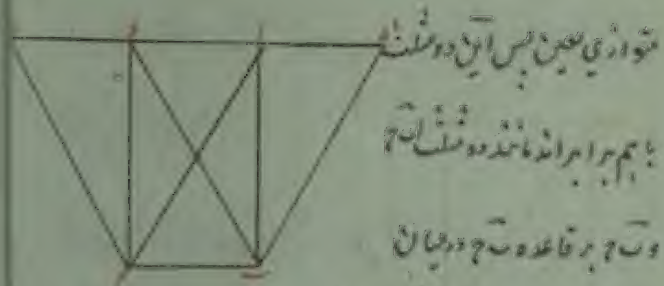 متوازي بعين پس اين دو مثلث
باهم برابراند مانند دو مثلث اب‌ج
و ب‌ج بر قاعده ب‌ج درميان